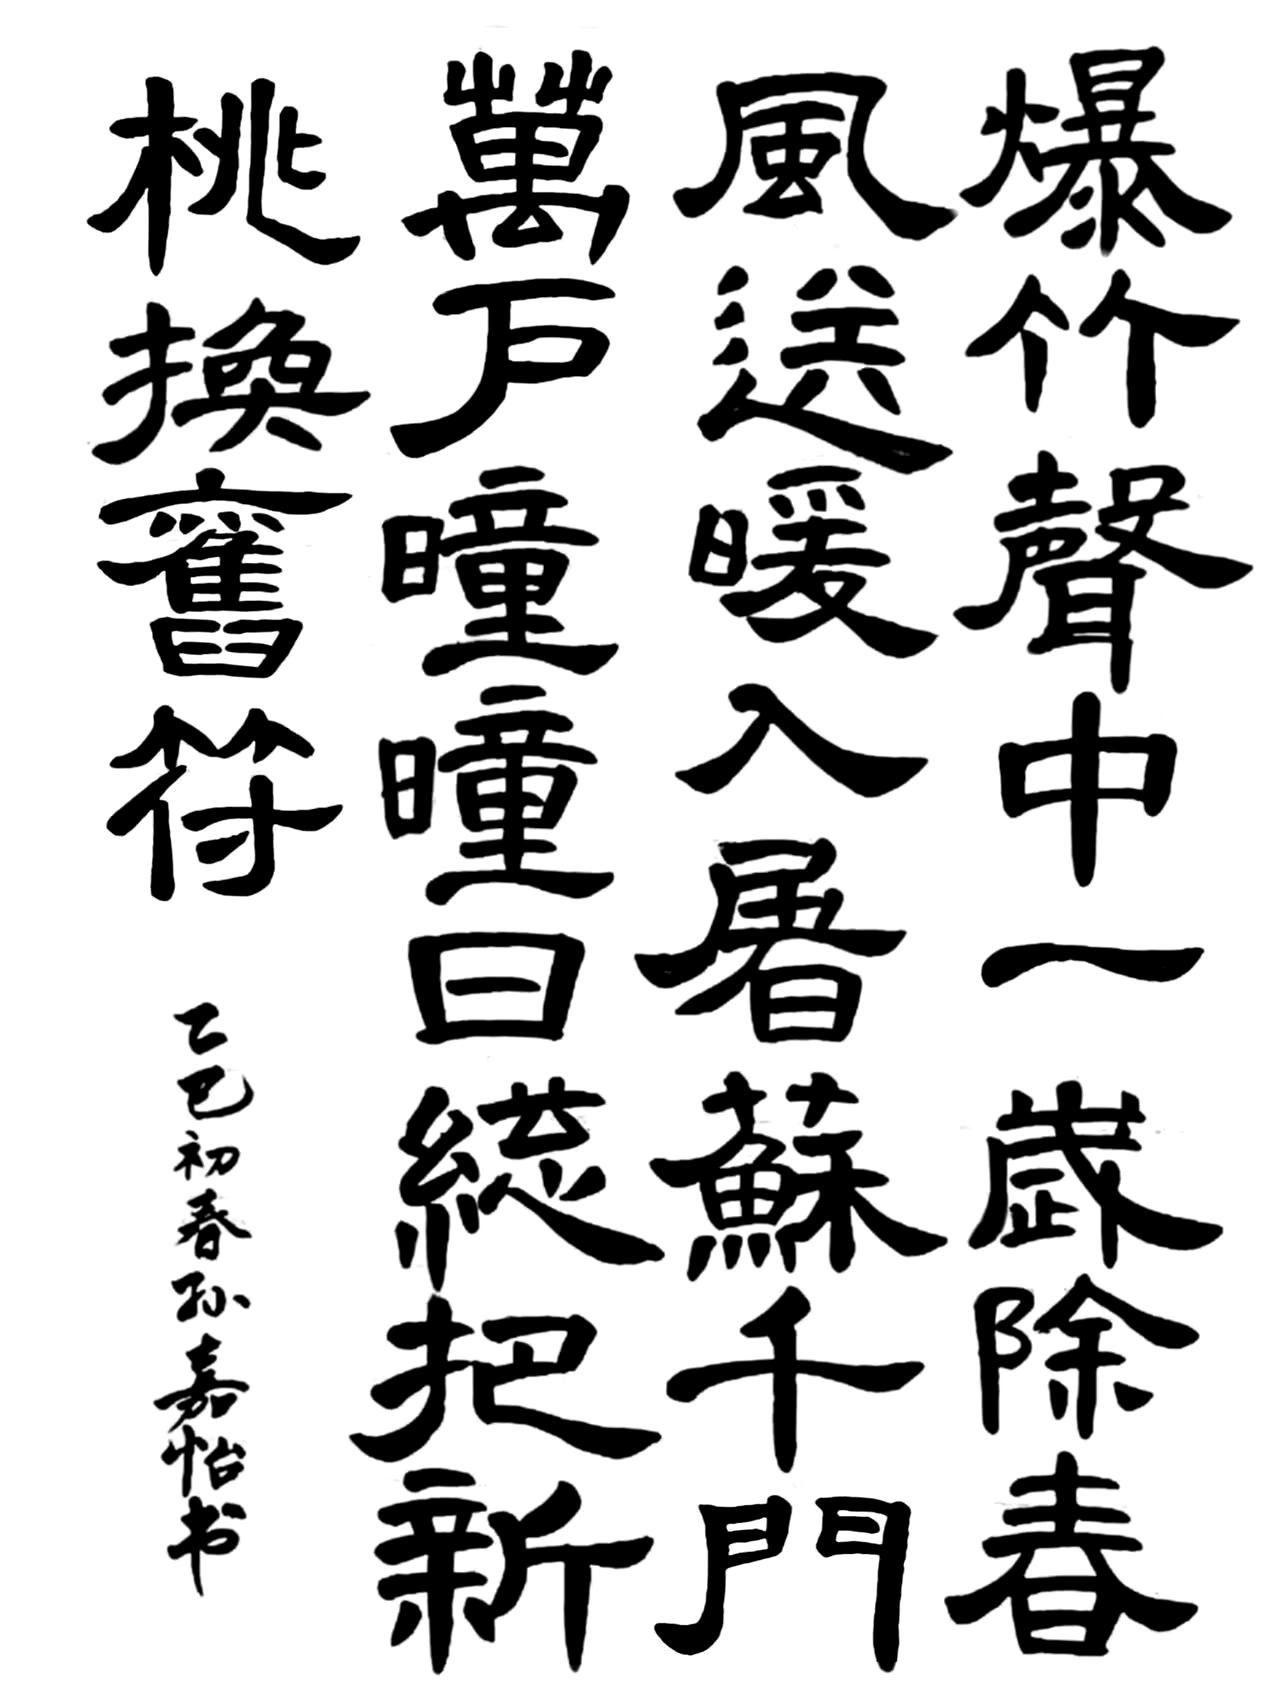 爆竹聲中一歲除春
風送暖入屠蘇千門
萬戶曈曈日総把新
桃換舊符
乙巳初春孙嘉怡书